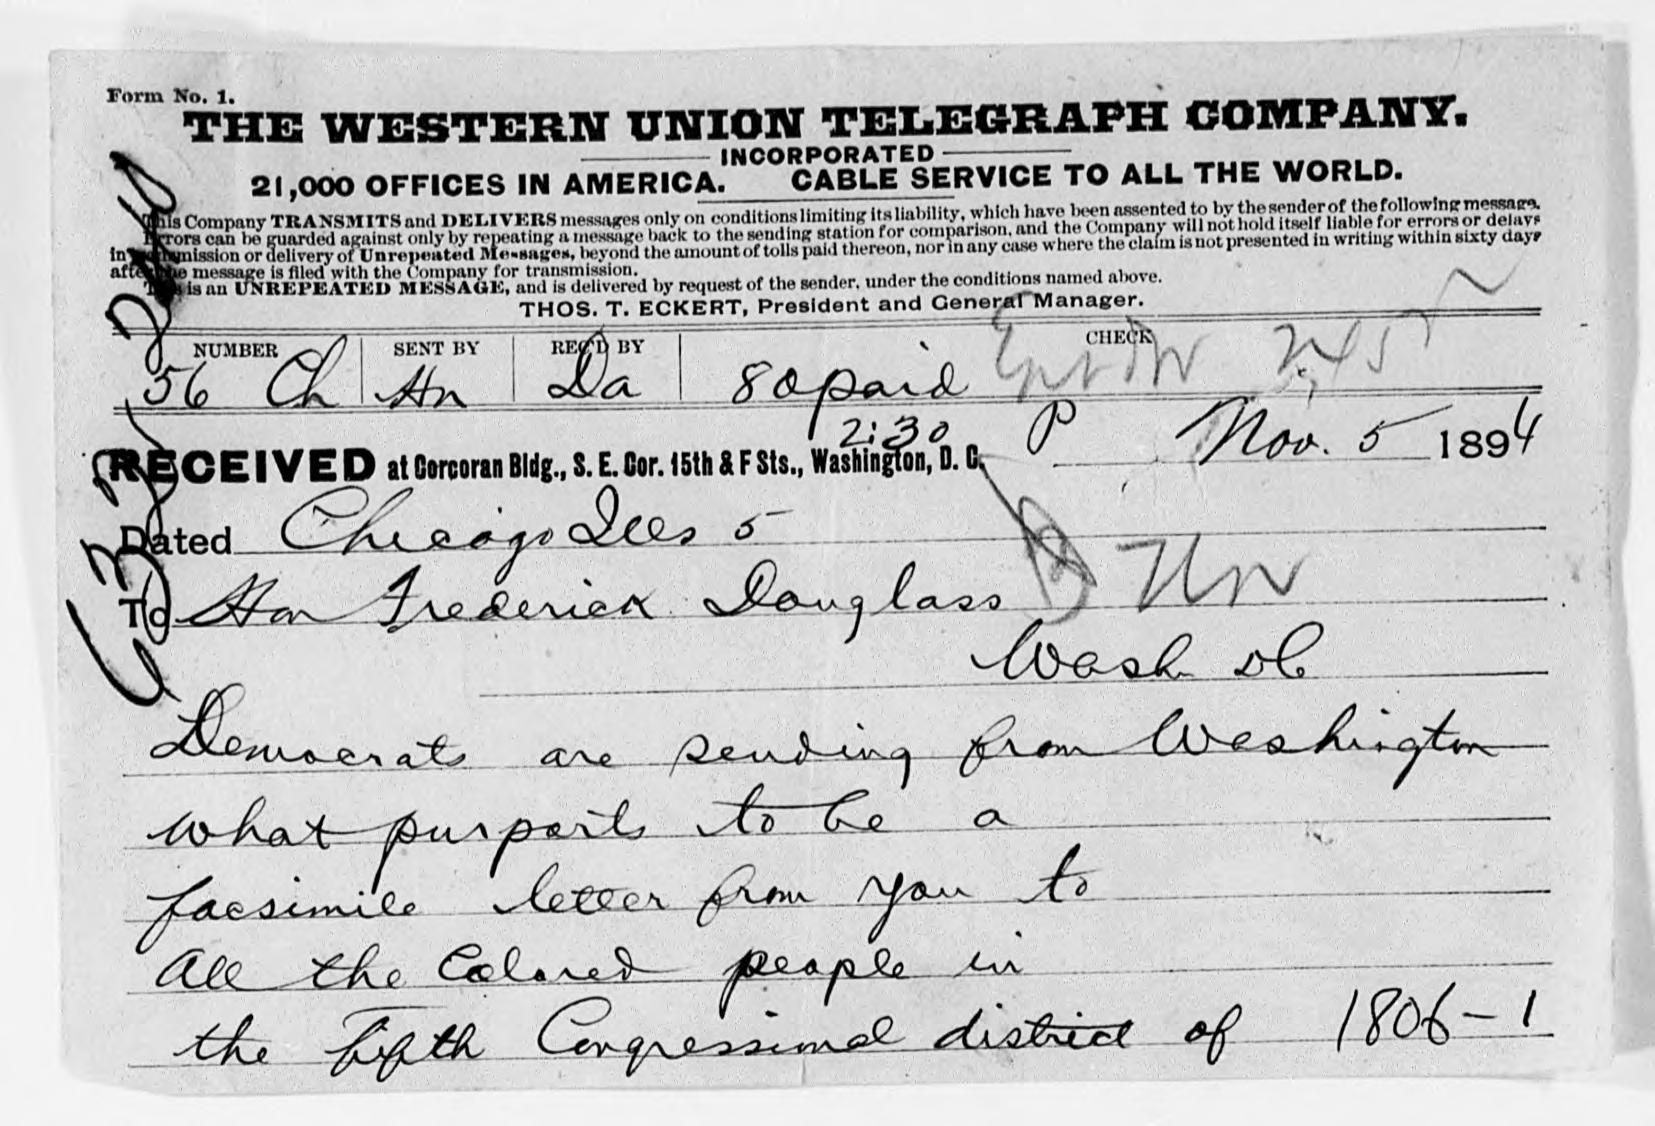 Form No. 1.
THE WESTERN UNION TELEGRAPH COMPANY.
INCORPORATED
21,000 OFFICES IN AMERICA. CABLE SERVICE TO ALL THE WORLD.
This Company TRANSMITS and DELIVERS messages only on conditions limiting its liability, which have been assented to by the sender of the following message.
Errors can be guarded against only by repeating a message back to the sending station for comparison, and the Company will not hold itself liable for errors or delays
in transmission or delivery of Unrepeated Messages, beyond the amount of tolls paid thereon, nor in any case where the claim is not presented in writing within sixty days
after the message is filed with the Company for transmission.
This is an UNREPEATED MESSAGE, and is delivered by request of the sender, under the conditions named above.
THOS. T. ECKERT, President and General Manager.
NUMBER SENT BY REC'D BY CHECK
56 Ch Hn Da 80 paid
2:30 P Nov. 5 1894
RECEIVED at Corcoran Bldg., S. E. Cor. 15th & F Sts., Washington, D. C.
Dated Chicago Ills 5
To Hon Frederick Douglass
Wash DC
Democrats are sending from Washington
what purports to be a
facsimile letter from you to
all the Colored people in
the fifth Congressional district of 1806-1